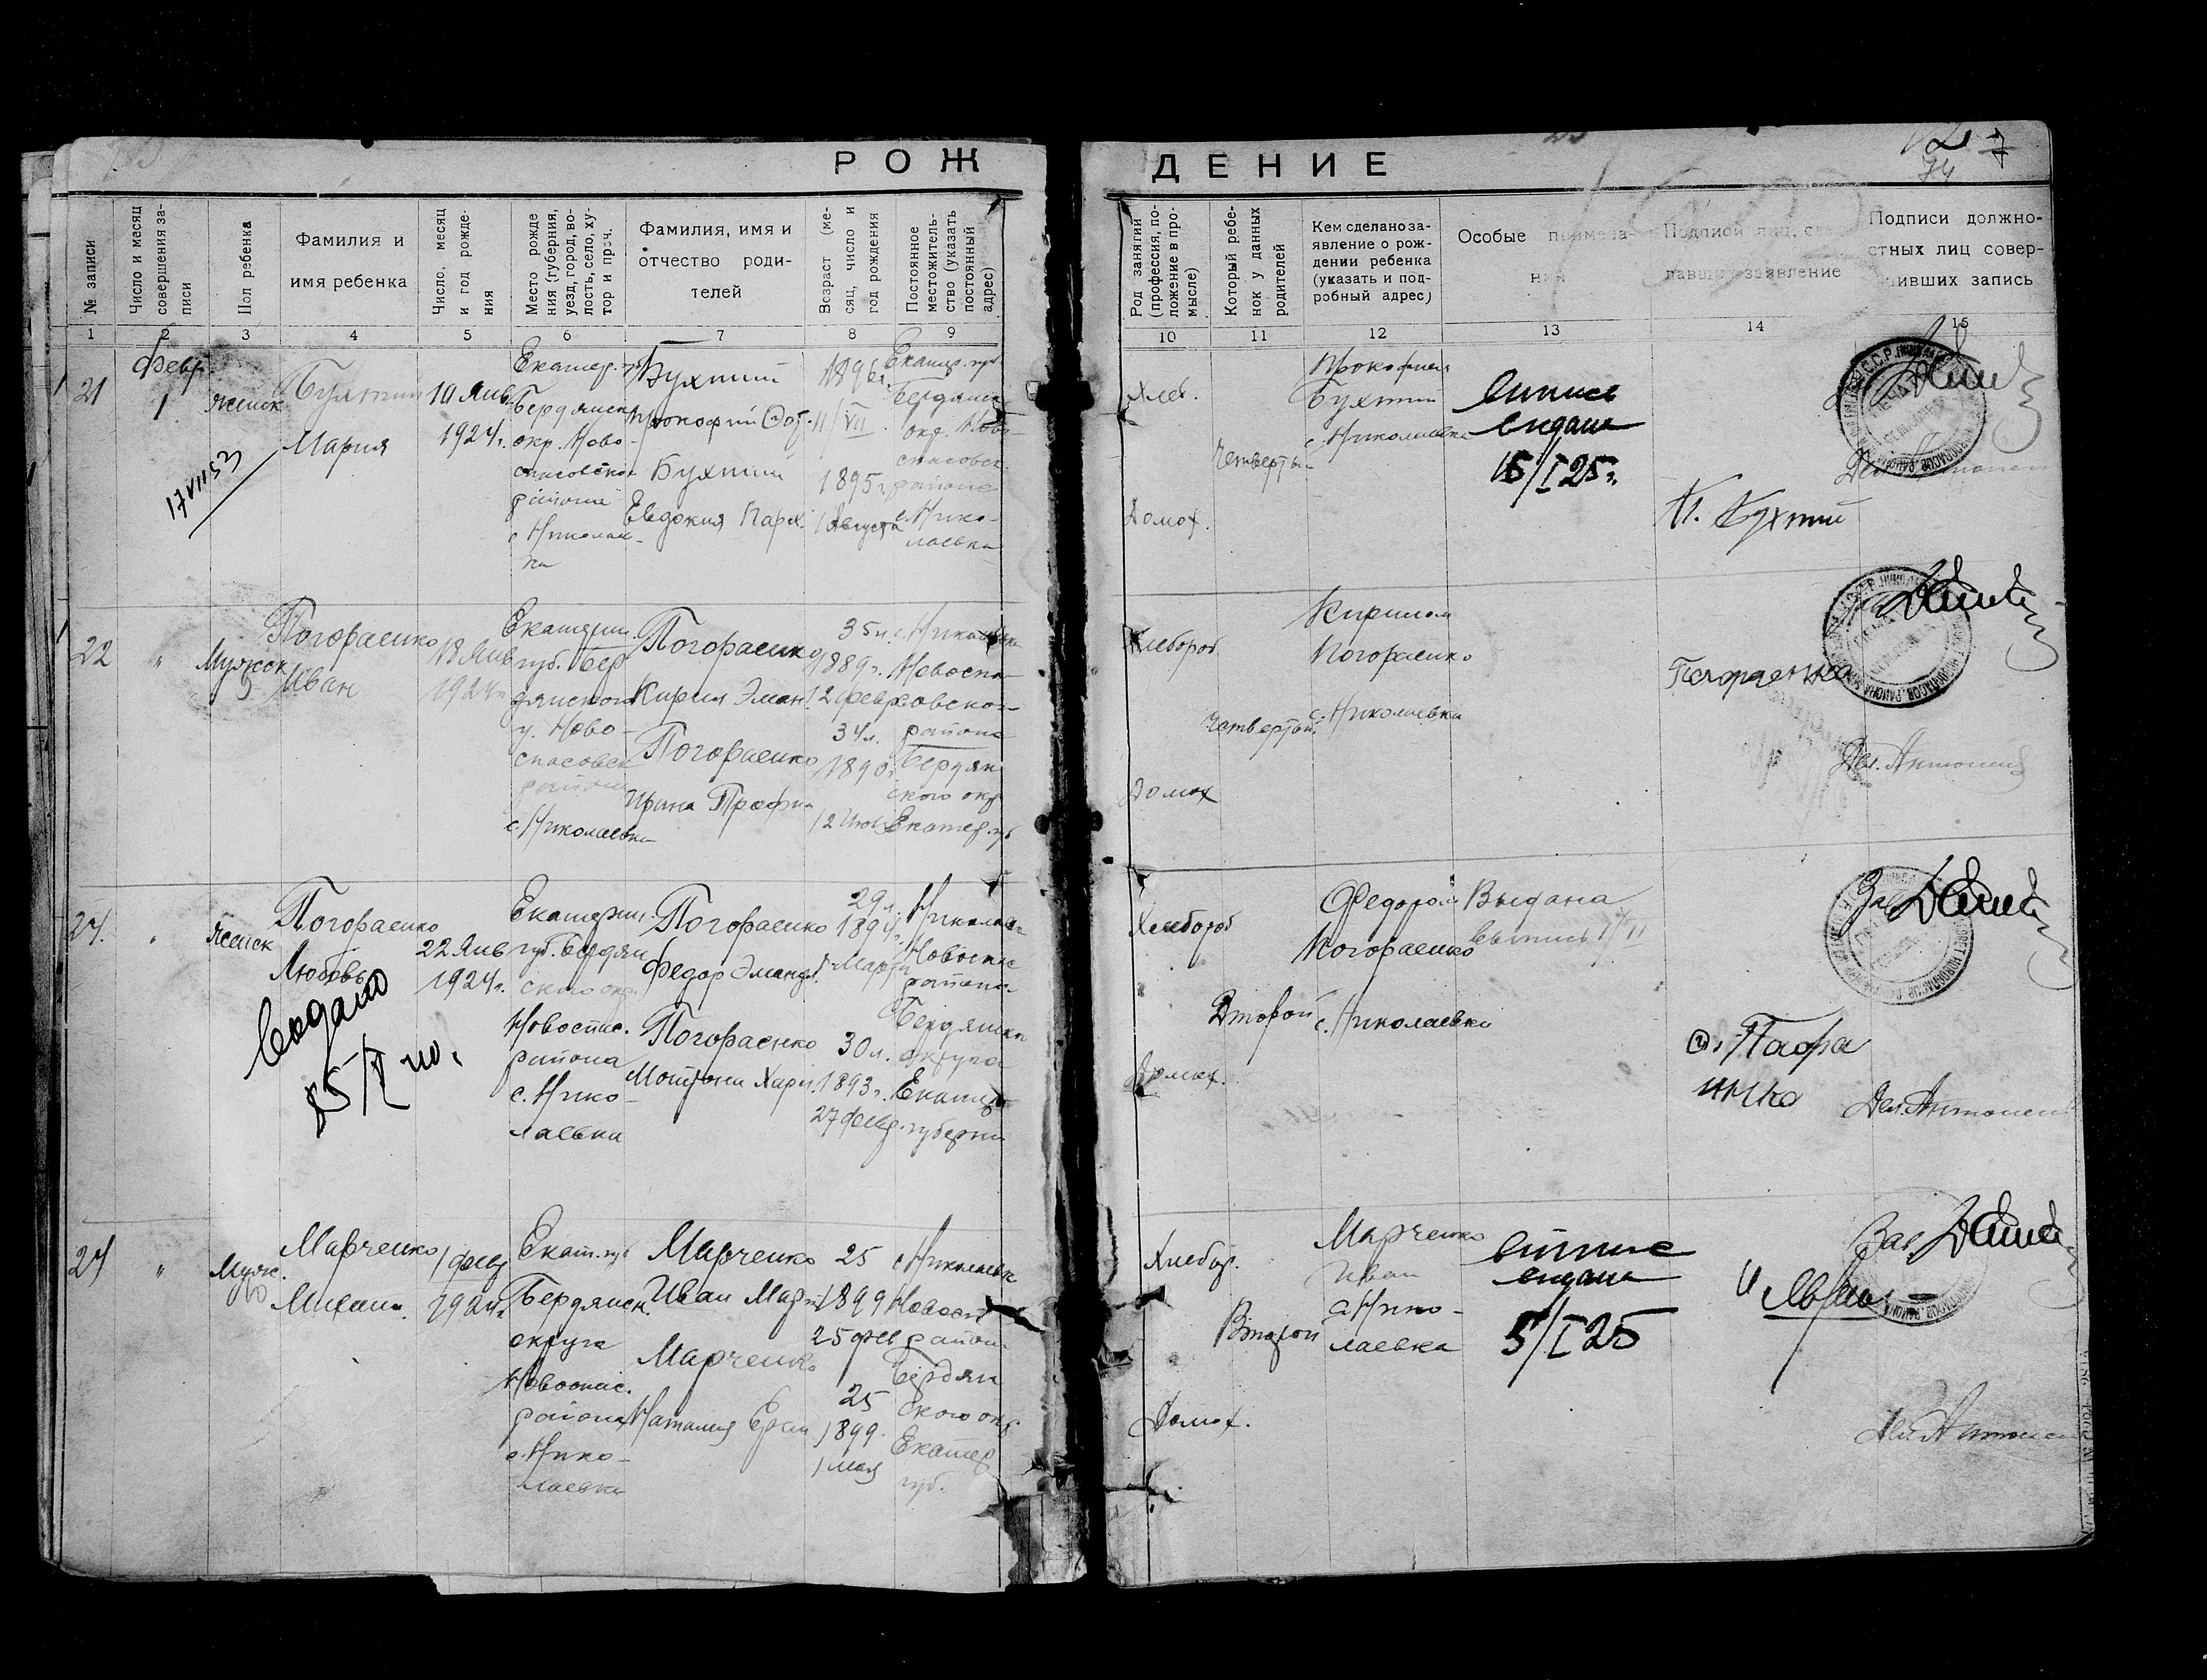 РОЖДЕНИЕ
№ записи
Число и месяц
совершения за-
писи
Пол ребенка
Фамилия и
имя ребенка
Число, месяц
и год рожде-
ния
Место рожде
ния (губерния,
уезд, город, во-
лость, село, ху-
тор и проч.
Фамилия, имя и
отчество роди-
телей
Возраст (ме-
сяц, число и
год рождения
Постоянное
местожитель-
ство (указать
постоянный
адрес)
Род занятий
(профессия, по-
ложение в про-
мысле)
Который ребе-
нок у данных
родителей
Кем сделано за-
явление о рож-
дении ребенка
(указать и под-
робный адрес)
Особые примеча-
ния
Подписи лиц, сде-
лавших заявление
Подписи должно-
стных лиц совер-
шивших запись
1 2 3 4 5 6 7 8 9 10 11 12 13 14 15
21
Февр.
1
женск
Бухтий
Мария
10 Янв
1924г.
Екатер. губ
Бердянск
окр. Ново-
спасовско
района
с. Николаев-
ка
Бухтий
Прокофий
Бухтий
Евдокия Парх.
1896г.
11/VII
1895г.
1 Августа
Екатер. губ
Бердянск
окр. Ново-
спасовск.
района
с. Нико-
лаевка
Хлеб.
Домох.
Четвертый
Прокофием
Бухтий
с. Николаевка
выпись
выдана
15/I 25г.
П. Бухтий
Дел. Антонен
17 VII 53
22
"
Мужск
Погораенко
Иван
18 Янв
1924г
Екатерин.
губ. Бер
дянского
у. Ново-
спасовск
района
с. Николаевка
Погораенко
Кирил Эман.
Погораенко
Ирина Трофим
35 л.
1889г.
12 февр
34 л.
1890г
12 Июл
с. Николаевка
Новоспа-
совского
района
Бердян
ского окр
Екатер. губ
Хлебороб
Домох
Четвертый
Кирилом
Погораенко
с. Николаевка
Погораенко
Дел. Антонен
24.
"
женск
Погораенко
Любовь
22 Янв
1924г.
Екатерин.
губ. Бердян
ского окр.
Новоспас.
района
с. Нико-
лаевка
Погораенко
Федор Эмануl.
Погораенко
Мотрона Харит.
29 л.
1894г.
Марта
30 л.
1893г.
27 февр.
Николаев
Новоспас
района
Бердянск
округа
Екатер
губерни
Хлебороб
Домох.
Второй
Федором
Погораенко
с. Николаевка
Выдана
выпись
Дел. Антонен
Выдано
25/V
24
"
Муж.
Марченко
Михаил.
1 февр
1924г.
Екат. губ
Бердянск.
округа
Новоспас.
района
с. Нико-
лаевка
Марченко
Иван Март
Марченко
Наталия
25
1899
25 фев
25
1899.
1 мая
с Николаевк
Новосп
район
Бердян
ского окр
Екатер
губ.
Хлебор.
Домох.
Второй
Марченко
Иван
с. Нико-
лаевка
выпись
выдана
5/I 25
Зав.
Дел. Антонен